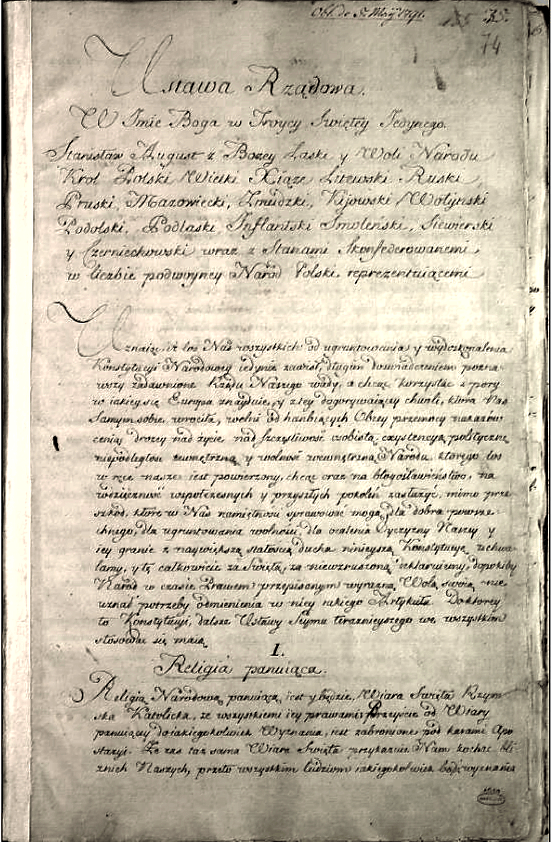 Obl. de 5. Maij 1791.
35.
74
Ustawa Rządowa.
W Imie Boga w Troycy Swiętey Jedynego.
Stanisław August z Bozey Łaski y Woli Narodu
Krol Polski Wielki Xiąze Litewski Ruski
Pruski, Mazowiecki, Zmudzki, Kijowski Wołyński
Podolski, Podlaski Inflantski Smoleński, Siewierski
y Czerniechowski wraz z Stanami Skonfederowanemi
w liczbie podwoyney Naród Polski reprezentuiącemi
Uznaiąc, iż los Nas wszystkich od ugruntowania y wydoskonalenia
Konstytucyi Narodowey iedynie zawisł, długim doswiadczeniem pozna-
wszy zadawnione Rządu Naszego wady, a chcąc korzystać z pory
w iakiey się Europa znayduie, y z tey dogorywaiącey chwili, która Nas
samym sobie wróciła, wolni od hanbiących Obcey przemocy nakazów
ceniąc drozey nad życie, nad szczęśliwość osobistą exystencyą polityczną
niepodległosc zewnętrzną y wolność wewnętrzną Narodu, ktorego los
w ręce nasze iest powierzony, chcąc oraz na błogosławieństwo, na
wdzięczność współczesnych y przyszłych pokoleń zasłużyć, mimo prze-
szkód, które w Nas namiętności sprawować mogą, dla dobra powsze-
chnego, dla ugruntowania wolności, dla ocalenia Oyczyzny Naszey y
iey granic z naywiększą stałością ducha ninieyszą Konstytucyę uchwa-
lamy, y tę całkowicie za Swiętą, za niewzruszoną deklaruiemy, dopokiby
Naród w czasie Prawem przepisanym wyrazną Wolą swoią nie
uznał potrzeby odmienienia w niey iakiego Artykułu. Do ktorey
to Konstytucyi, dalsze Ustawy Seymu teraznieyszego we wszystkim
stosować się maią
I.
Religia panuiąca.
Religią Narodową panuiącą iest y będzie Wiara Swięta Rzym-
ska Katolicka, ze wszystkiemi iey prawami; Przeyście od Wiary
panuiącey do iakiegokolwiek Wyznania, iest zabronione pod karami Apo
stazyi. Ze zas taz sama Wiara Swięta przykazuie Nam kochac bli-
znich Naszych, przeto wszystkim ludziom iakiegokolwiek bądz wyznania